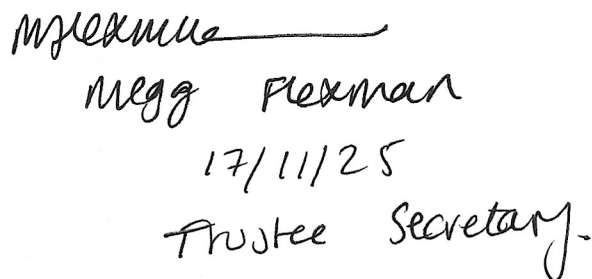 Megg Flexman
17/11/25
Trustee Secretary.